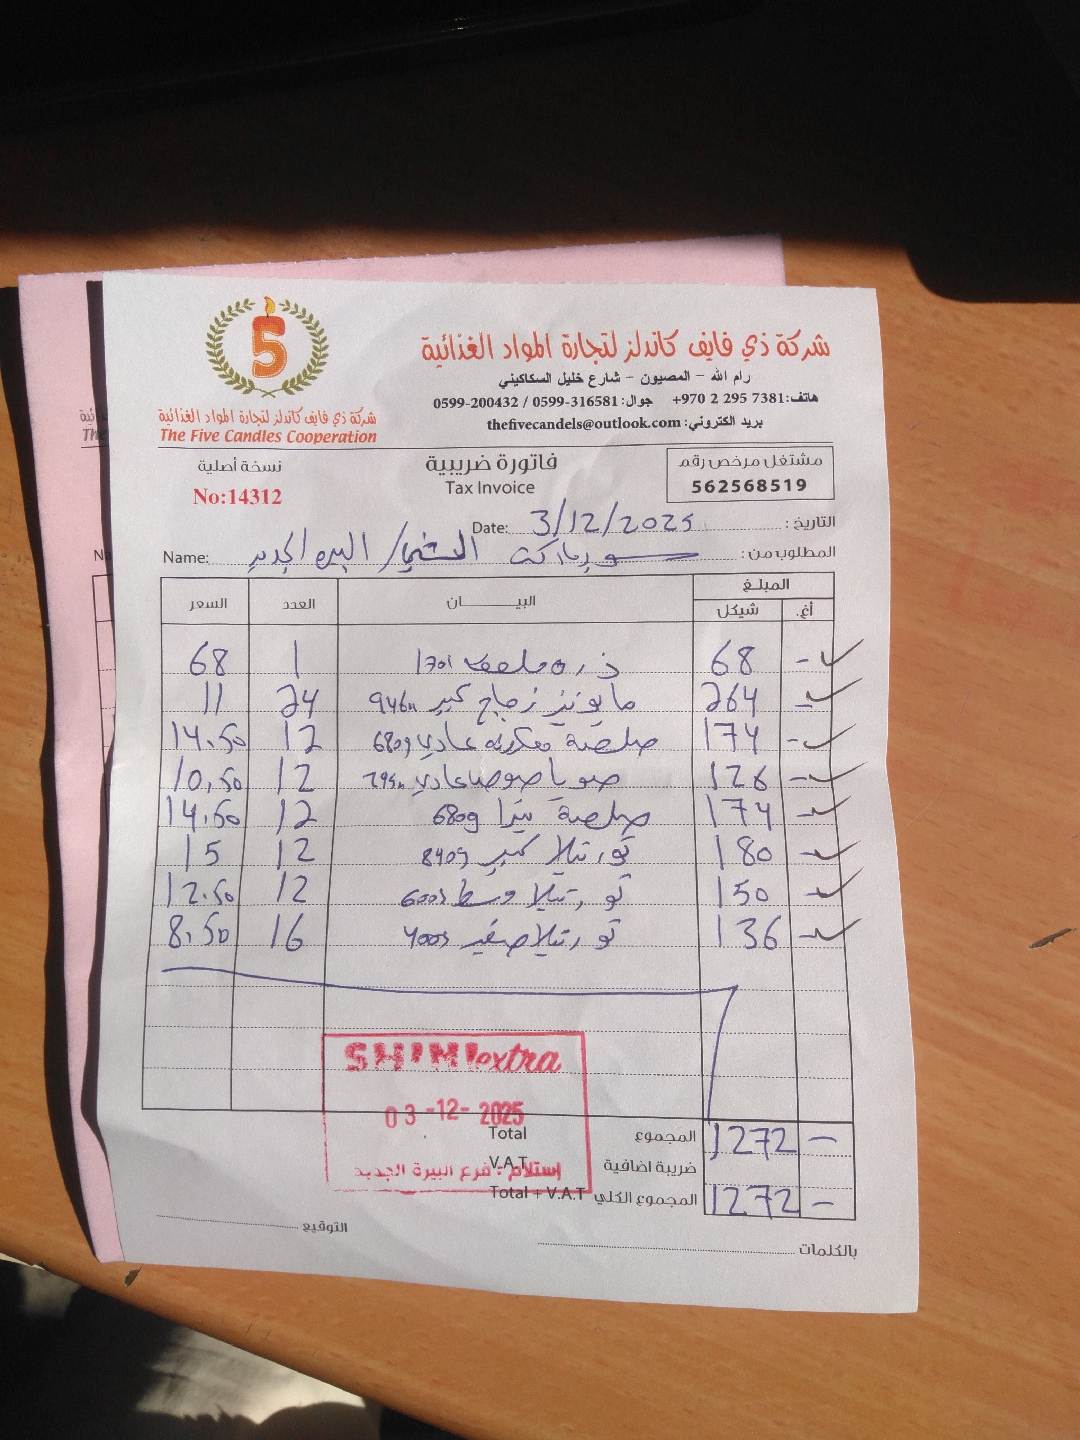 شركة ذي فايف كاندلز لتجارة المواد الغذائية
رام الله – المصيون – شارع خليل السكاكيني
هاتف: +970 2 295 7381 جوال: 0599-316581 / 0599-200432
بريد الكتروني: thefivecandels@outlook.com
5
شركة ذي فايف كاندلز لتجارة المواد الغذائية
The Five Candles Cooperation
مشتغل مرخص رقم
562568519
فاتورة ضريبية
Tax Invoice
نسخة أصلية
No:14312
التاريخ: 3/12/2025 Date:
المطلوب من: سوبرماركت الشني / البيره الجديد Name:
المبلغ
أغ. شيكل البيــــان العدد السعر
- 68 ذره 1 68
- 264 مايونيز زجاج كبير 946 24 11
- 174 صلصة عادي 680g 12 14.50
- 126 صويا صوص عادي 12 10.50
- 174 صلصة بيتزا 680g 12 14.50
- 180 تورتيلا كبير 840g 12 15
- 150 تورتيلا وسط 600g 12 12.50
- 136 تورتيلا صغير 400g 16 8.50
SHIMI extra
03-12-2025
إستلام : فرع البيرة الجديد
المجموع Total 1272 -
ضريبة اضافية V.A.T
المجموع الكلي Total + V.A.T 1272 -
التوقيع
بالكلمات